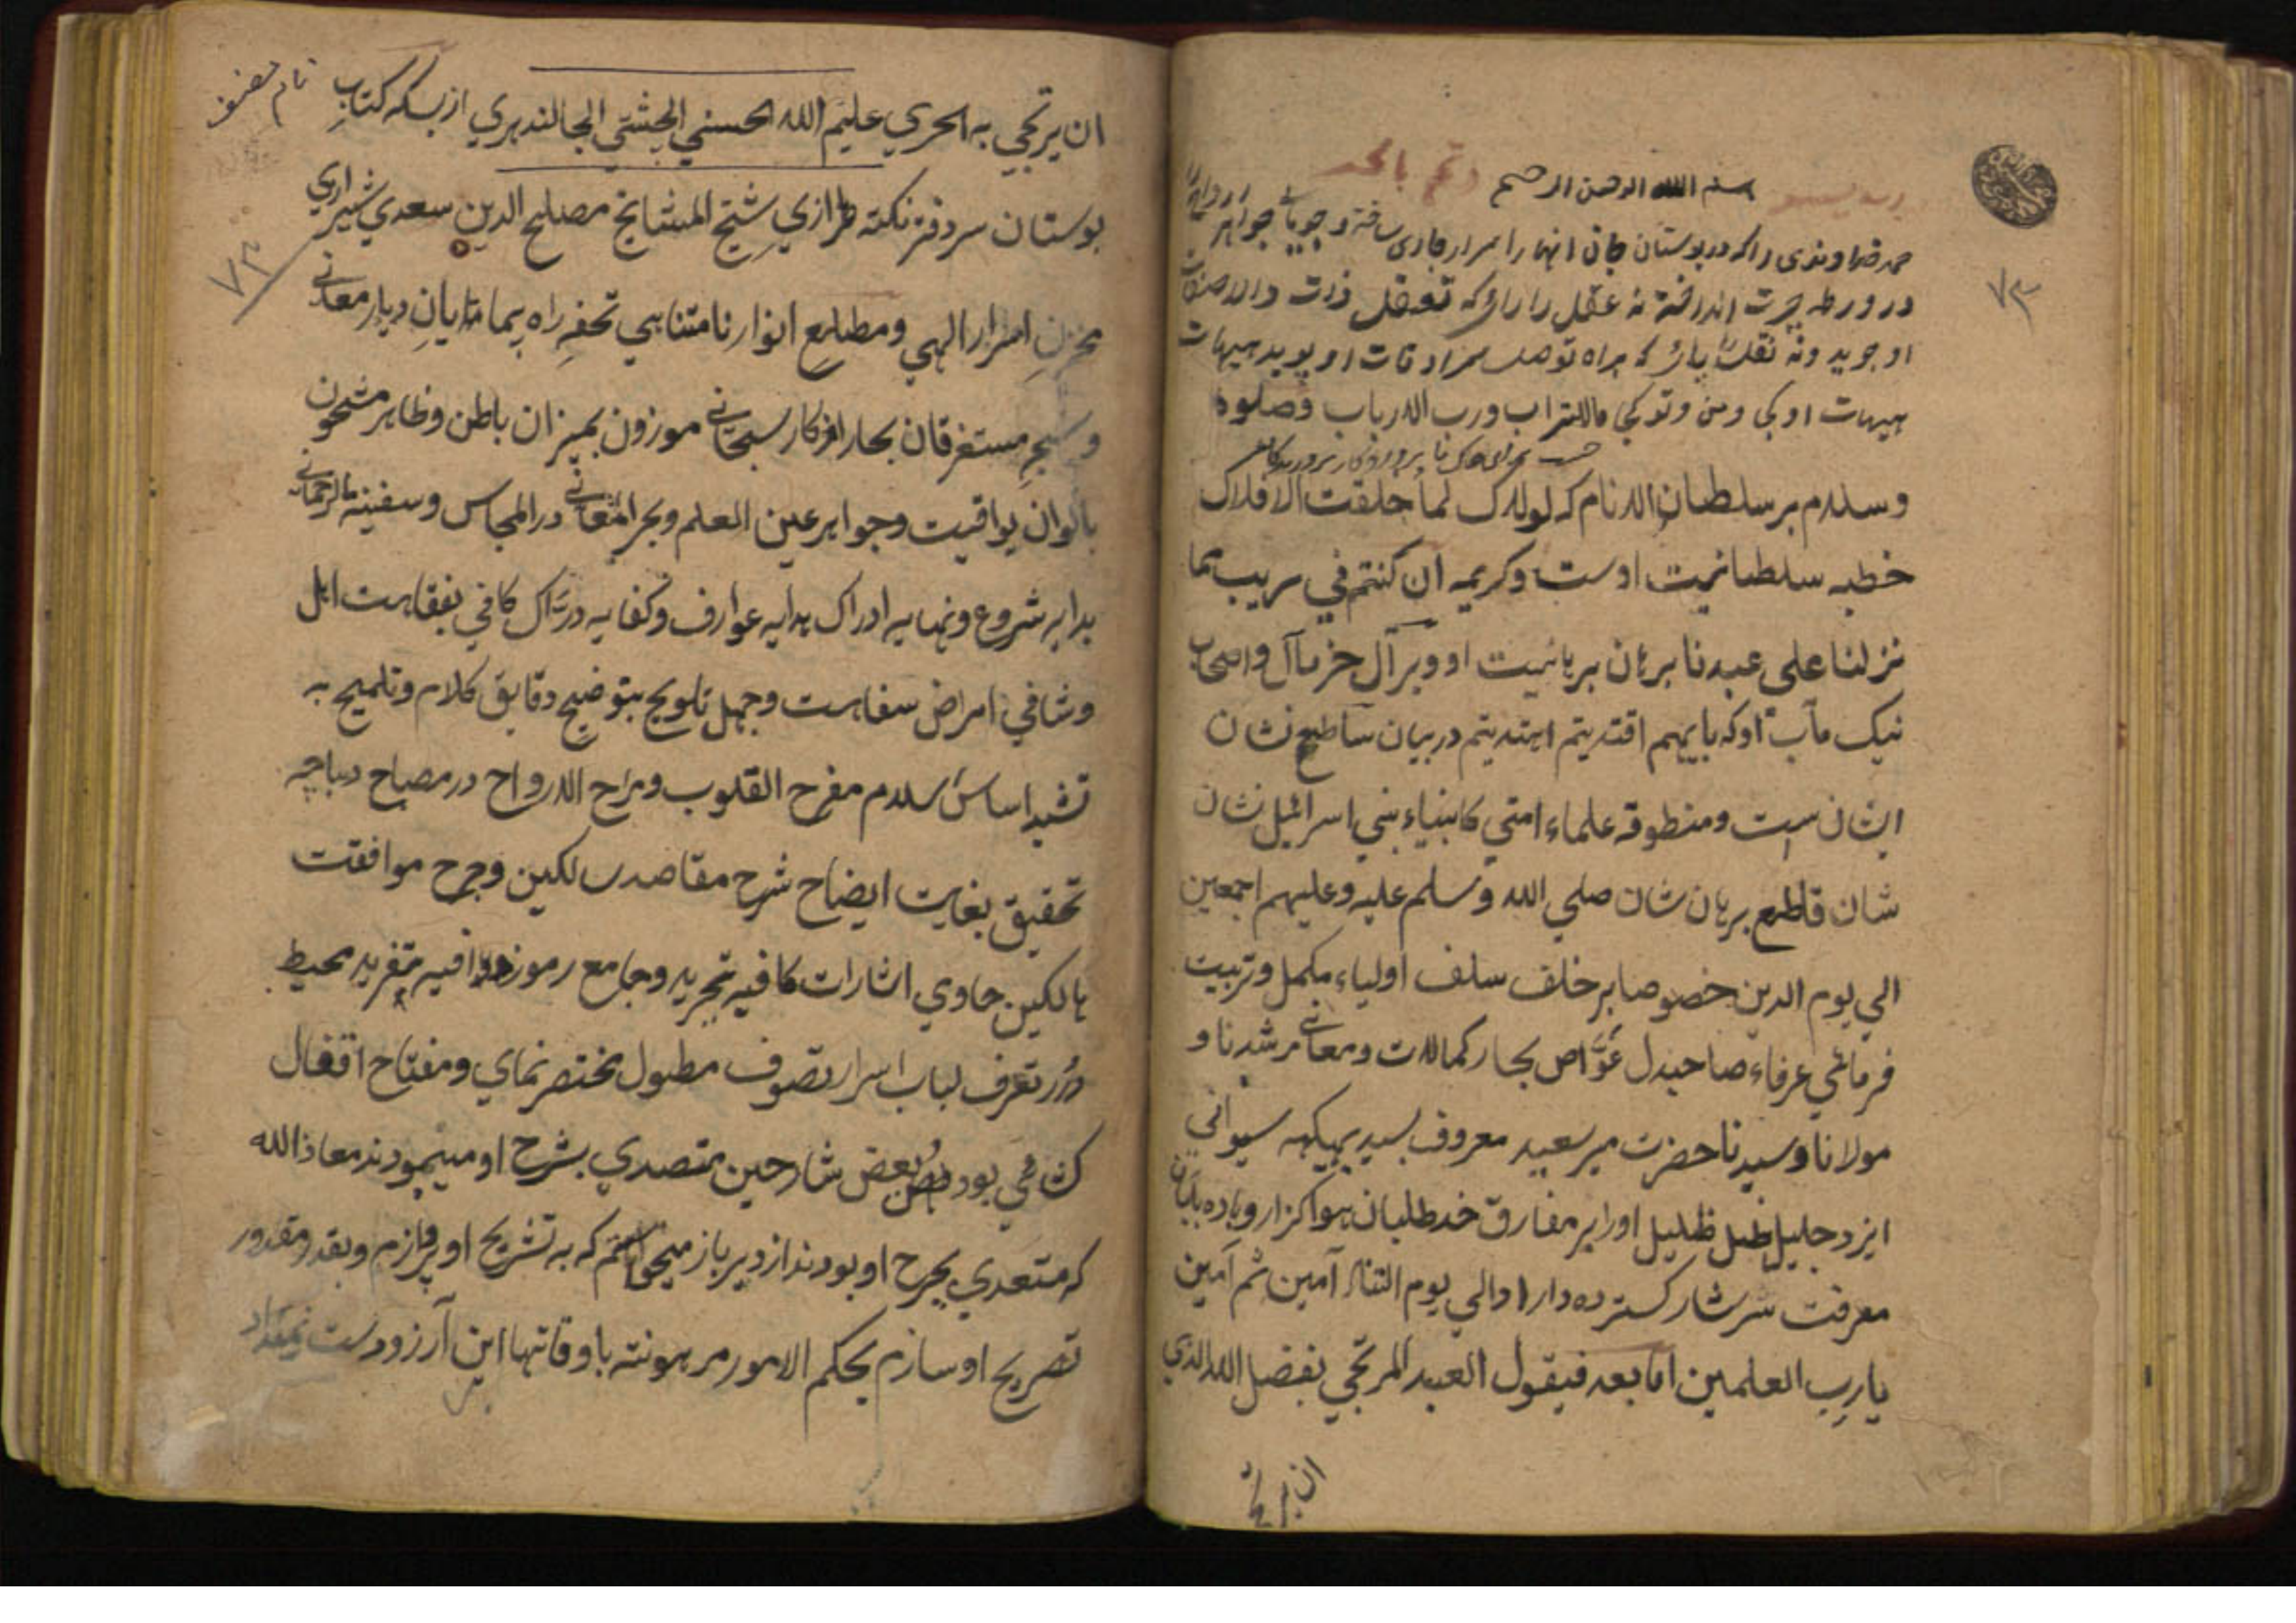 بسم الله الرحمن الرحيم وتمم بالخير
حمد خداوندی را که در بوستان جان انهار اسرار جاری ساخته و جویای جواهر
در ورطه حیرت انداخته نه عقل را یارای که تعقل ذات والا صفات
او جوید ونه نقل را یارای که براه توصل سرادقات او پوید هیهات
هیهات او کی ومن وتو کی ماللتراب ورب الارباب وصلوة
وسلام بر سلطان الانام که لولاک لما خلقت الافلاک
خطبه سلطانیت اوست وکریمه ان کنتم في ریب مما
نزلنا علی عبدنا برهان برهانیت او وبر آل خیر مآل واصحاب
نیک مآب او که بایهم اقتدیتم اهتدیتم در بیان ساطع نشان
ایشان ست ومنطوقه علماء امتي کانبیاء بني اسرائیل نشان
شان قاطع برهان شان صلي الله وسلم علیه وعلیهم اجمعین
الي یوم الدین خصوصا بر خلف سلف اولیاء مکمل وتربیت
فرمائي عرفاء صاحبدل غواص بحار کمالات ومعاني مرشدنا و
مولانا وسیدنا حضرت میر سعید معروف سید بهیکهه سیوانی
ایزد جلیل ظل ظلیل او را بر مفارق خدا طلبان هواگزار وباده پایان
معرفت سرشار گسترده دارا والي یوم التناد آمین ثم آمین
یا رب العلمین اما بعد فیقول العبد المرتجي بفضل الله الذي
ان یرتجی
۷۳
نام مصنف
ان یرتجي به الحري علیم الله الحسني الچشتي الجالندهري از بسکه کتاب
بوستان سر دفتر نکته طرازي شیخ المشایخ مصلح الدین سعدي شیرازي
۷۳
مخزن اسرار الهي ومطلع انوار نامتناهي تحفه راه پیمایان دیار معانی
مستغرقان بحار افکار سبحانی موزون بمیزان باطن وظاهر مشحون
بالوان یواقیت وجواهر عین العلم وبحر المعانی در المجالس وسفینه
بدایه شروع ونهایه ادراک هدایه عوارف وکفایه دراک کافي بفقاهت اهل
وشافي امراض سفاهت وجهل تلویح بتوضیح دقایق کلام وتلمیح به
تشید اساس اسلام مفرح القلوب ومراح الارواح در مصباح دیباچه
تحقیق بغایت ایضاح شرح مقاصد سالکین وجرح موافقت
هالکین حاوي اشارات کافیه تجرید وجامع رموز وافیه تفرید محیط
درر تعرف لباب اسرار تصوف مطول مختصر نماي ومفتاح اقفال
بود بعض شارحین متصدي بشرح او میبودند معاذ الله
که متعدي بجرح او بودند از دیر باز میخواستم که به تشریح او پردازم وبقدر مقدور
تصریح او سازم بحکم الامور مرهونة باوقاتها این آرزو دست نمیداد